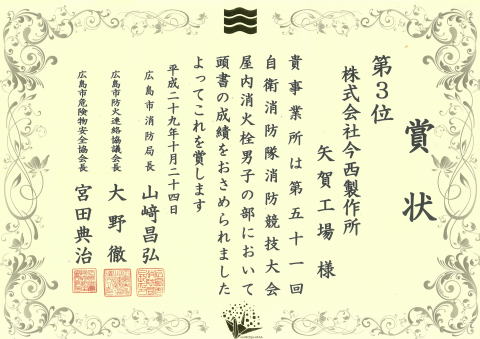 賞状
第3位
株式会社今西製作所
矢賀工場 様
貴事業所は第五十一回
自衛消防隊消防競技大会
屋内消火栓男子の部において
頭書の成績をおさめられました
よってこれを賞します
平成二十九年十月二十四日
広島市消防局長 山﨑昌弘
広島市防火連絡協議会長 大野徹
広島市危険物安全協会長 宮田典治